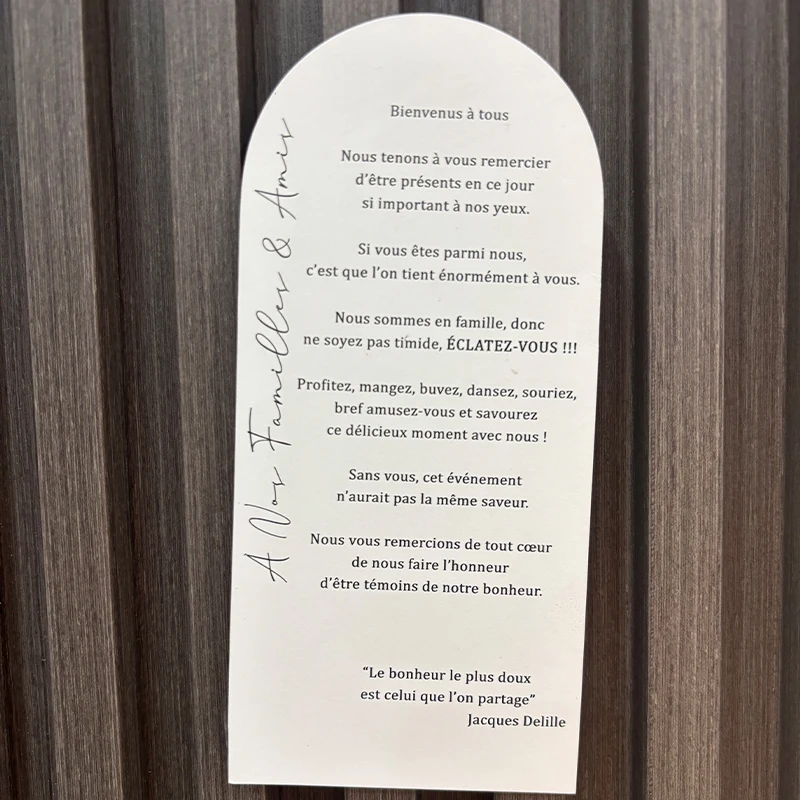 A Nos Familles & Amis
Bienvenus à tous
Nous tenons à vous remercier
d'être présents en ce jour
si important à nos yeux.
Si vous êtes parmi nous,
c'est que l'on tient énormément à vous.
Nous sommes en famille, donc
ne soyez pas timide, ÉCLATEZ-VOUS !!!
Profitez, mangez, buvez, dansez, souriez,
bref amusez-vous et savourez
ce délicieux moment avec nous !
Sans vous, cet événement
n'aurait pas la même saveur.
Nous vous remercions de tout cœur
de nous faire l'honneur
d'être témoins de notre bonheur.
“Le bonheur le plus doux
est celui que l'on partage”
Jacques Delille